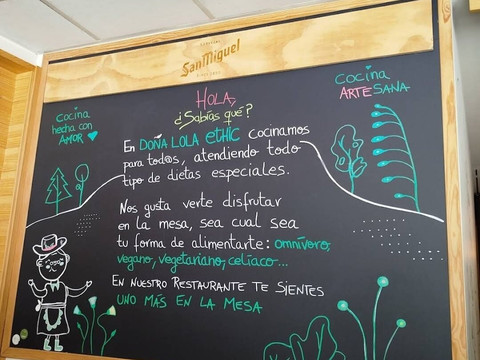 San Miguel
HOLA,
¿Sabías qué?
Cocina
hecha con
AMOR
Cocina
ARTESANA
En DOÑA LOLA ethic cocinamos
para tod@s, atendiendo todo
tipo de dietas especiales.
Nos gusta verte disfrutar
en la mesa, sea cual sea
tu forma de alimentarte: omnívoro,
vegano, vegetariano, celíaco...
EN NUESTRO RESTAURANTE TE SIENTES
UNO MÁS EN LA MESA